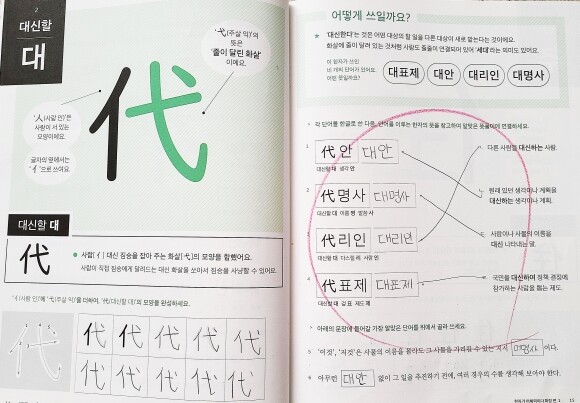 2
대신할
대
'弋(주살 익)'의
뜻은
'줄이 달린 화살'
이에요.
代
'人(사람 인)'은
사람이 서 있는
모양이에요.
글자의 옆에서는
'亻'으로 쓰여요.
대신할 대
代
사람(亻) 대신 짐승을 잡아 주는 화살[弋]의 모양을 합했어요.
사람이 직접 짐승에게 달려드는 대신 화살을 쏘아서 짐승을 사냥할 수 있어요.
'亻(사람 인)'에 '弋(주살 익)'을 더하여, '代(대신할 대)'의 모양을 완성하세요.
代 代 代 代 代 代
代 代 代 代 代
어떻게 쓰일까요?
* '대신한다'는 것은 어떤 대상의 할 일을 다른 대상이 새로 맡는다는 것이에요.
화살에 줄이 달려 있는 것처럼 사람도 줄줄이 연결되어 있어 '세대'라는 의미도 있어요.
이 한자가 쓰인
네 개의 단어가 있어요.
어떤 뜻일까요?
대표제 대안 대리인 대명사
각 단어를 한글로 쓴 다음, 단어를 이루는 한자의 뜻을 참고하여 알맞은 뜻풀이에 연결하세요.
1 代안 대안
대신할 대 생각 안
다른 사람을 대신하는 사람.
2 代명사 대명사
대신할 대 이름 명 말씀 사
원래 있던 생각이나 계획을
대신하는 생각이나 계획.
3 代리인 대리인
대신할 대 다스릴 리 사람 인
사람이나 사물의 이름을
대신 나타내는 말.
4 代표제 대표제
대신할 대 겉 표 제도 제
국민을 대신하여 정책 결정에
참가하는 사람을 뽑는 제도.
아래의 문장에 들어갈 가장 알맞은 단어를 위에서 골라 쓰세요.
5 '이것', '저것'은 사물의 이름을 몰라도 그 사물을 가리킬 수 있는 지시 대명사 이다.
6 아무런 대안 없이 그 일을 추진하기 전에, 여러 경우의 수를 생각해 보아야 한다.
15